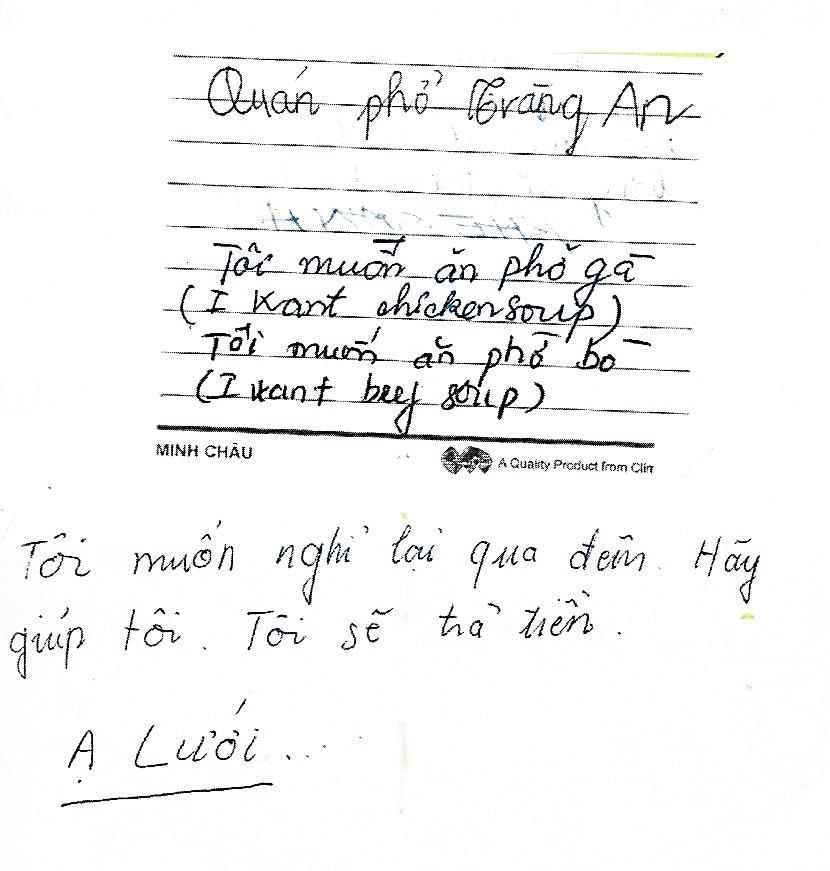 Quán phở Tràng An
Tôi muốn ăn phở gà
(I want chicken soup)
Tôi muốn ăn phở bò
(I want beef soup)
MINH CHÂU
A Quality Product from Clin
Tôi muốn nghỉ lại qua đêm. Hãy
giúp tôi. Tôi sẽ trả tiền.
A Lưới...